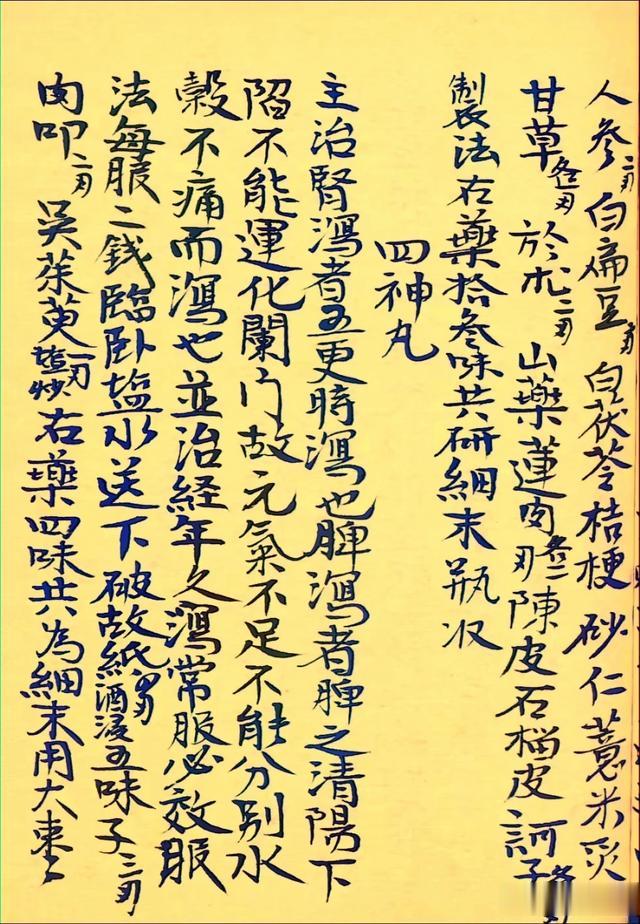 人參二刄白扁豆刄白茯苓桔梗砂仁薏米炙
甘草各壹刄於朮二刄山藥蓮肉各二刄陳皮石榴皮訶子各
製法右藥拾叄味共研細末瓶收
四神丸
主治腎瀉者五更時瀉也脾瀉者脾之清陽下
陷不能運化闌门故元氣不足不能分別水
穀不痛而瀉也並治経年久瀉常服必效服
法每服二錢臨卧塩水送下破故紙刄酒浸五味子三刄
肉叩二刄吳茱萸一刄塩炒右藥四味共為細末用大棗